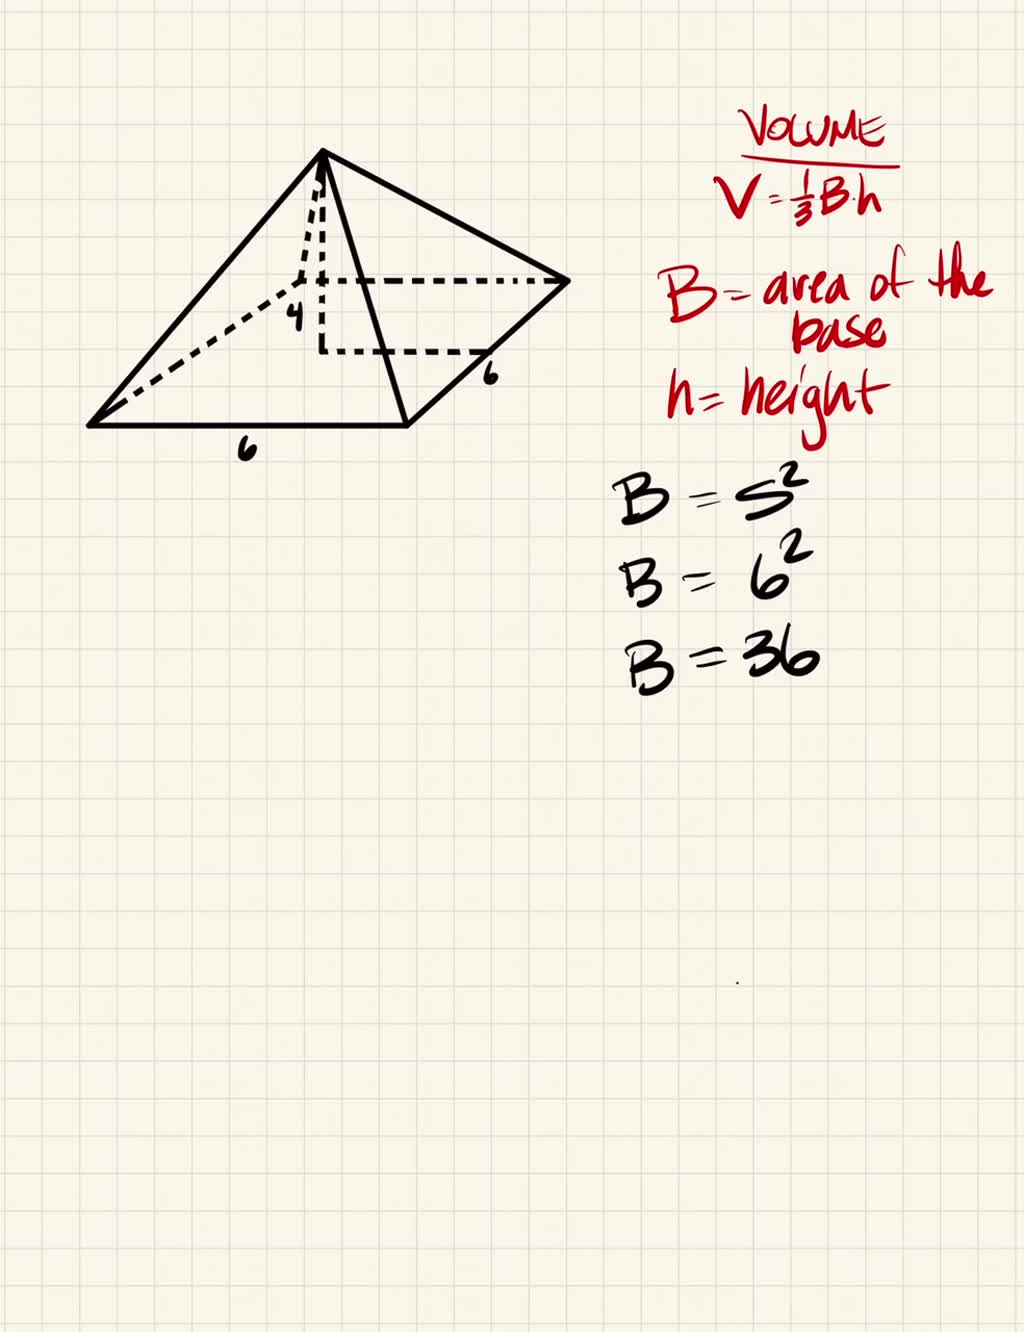 VOLUME
V = 1/3 B · h
B = area of the
base
h = height
4
6
6
B = s²
B = 6²
B = 36